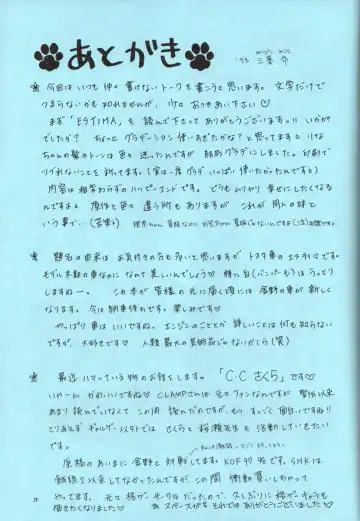 あとがき
'98 三条 令
★ 今回はいつも仲々書けないトークを書こうと思います。文字だけで
つまらないかも知れませんが、少々おつきあい下さい♡
まず「ESTIMA」を読んで下さってありがとうございます!! いかが
でしたか? ちょっとグラデーション使いすぎたかな?と思ってます
ちゃんの髪のトーンは色々迷ったんですが結局グラデにしました。印刷で
つぶれないことを祈ってます。(実は一度グラデいっぱい使いたかったんです)
内容は相変わらずのハッピーエンドです。どうもムリヤリ幸せにしたくなる
んですよ。原作と色々違う所もありますが これが同人の味と
いう事で…(苦笑)
★ 題名の由来はお気付きの方も多いと思いますが トヨタ車のエスティマです。
モデル末期の車なのに なんて美しいんでしょう♡ 特に白(バンパーも)はうっとり
しますねー。この本が皆様の元に届く頃には 倉野の車が新しく
なります。今は納車待ちです。楽しみです♡
やっぱり車はいいですね。エンジンのこととか 詳しいことは何も知らない
ですが、大好きです♡ 人類最大の美術品じゃないかしら(笑)
★ 最近ハマっている物のお話をします。「C・Cさくら」です♡
いやーん かわいいですね♡ CLAMPさんは元々ファンなんですが 聖伝以来
あまり読んでいなくて この間 読んだのですが、もう すっごく面白いですね!!
とりあえず ギャルゲー以外では さくらと桜猫先生も活動していきたい
です。
原稿のあいまに倉野と対戦してます。KOF97 で。SNKは
餓狼2以来してなかったんですが、この間 衝動買いしちゃって
やってます。元々格ゲーサークルだったので 久しぶりに格ゲーキャラも
描きたくなりました♡ あ、スペースがない それではありがとうございました♡